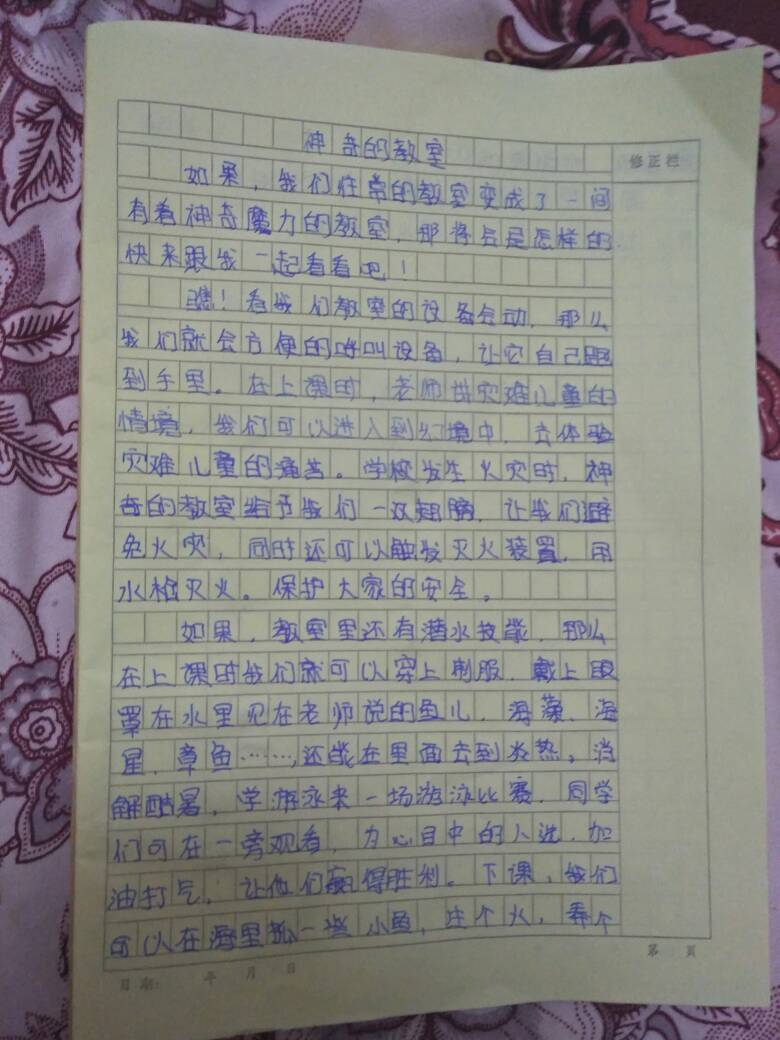 神奇的教室
修正栏
如果,我们往常的教室变成了一间
有着神奇魔力的教室,那将会是怎样的
快来跟我一起看看吧!
瞧!看我们教室的设备会动,那么
我们就会方便的呼叫设备,让它自己跑
到手里。在上课时,老师讲灾难儿童的
情境,我们可以进入到幻境中,去体验
灾难儿童的痛苦。学校发生火灾时,神
奇的教室给予我们一双翅膀,让我们避
免火灾,同时还可以触发灭火装置,用
水枪灭火。保护大家的安全。
如果,教室里还有潜水技能,那么
在上课时我们就可以穿上制服,戴上眼
罩在水里见在老师说的鱼儿,海藻,海
星,章鱼……,还能在里面去到炎热。消
解酷暑,学游泳来一场游泳比赛,同学
们可在一旁观看,为心目中的人选,加
油打气,让他们赢得胜利。下课,我们
可以在海里抓一些小鱼,生个火,弄个
第 页
日期: 年 月 日